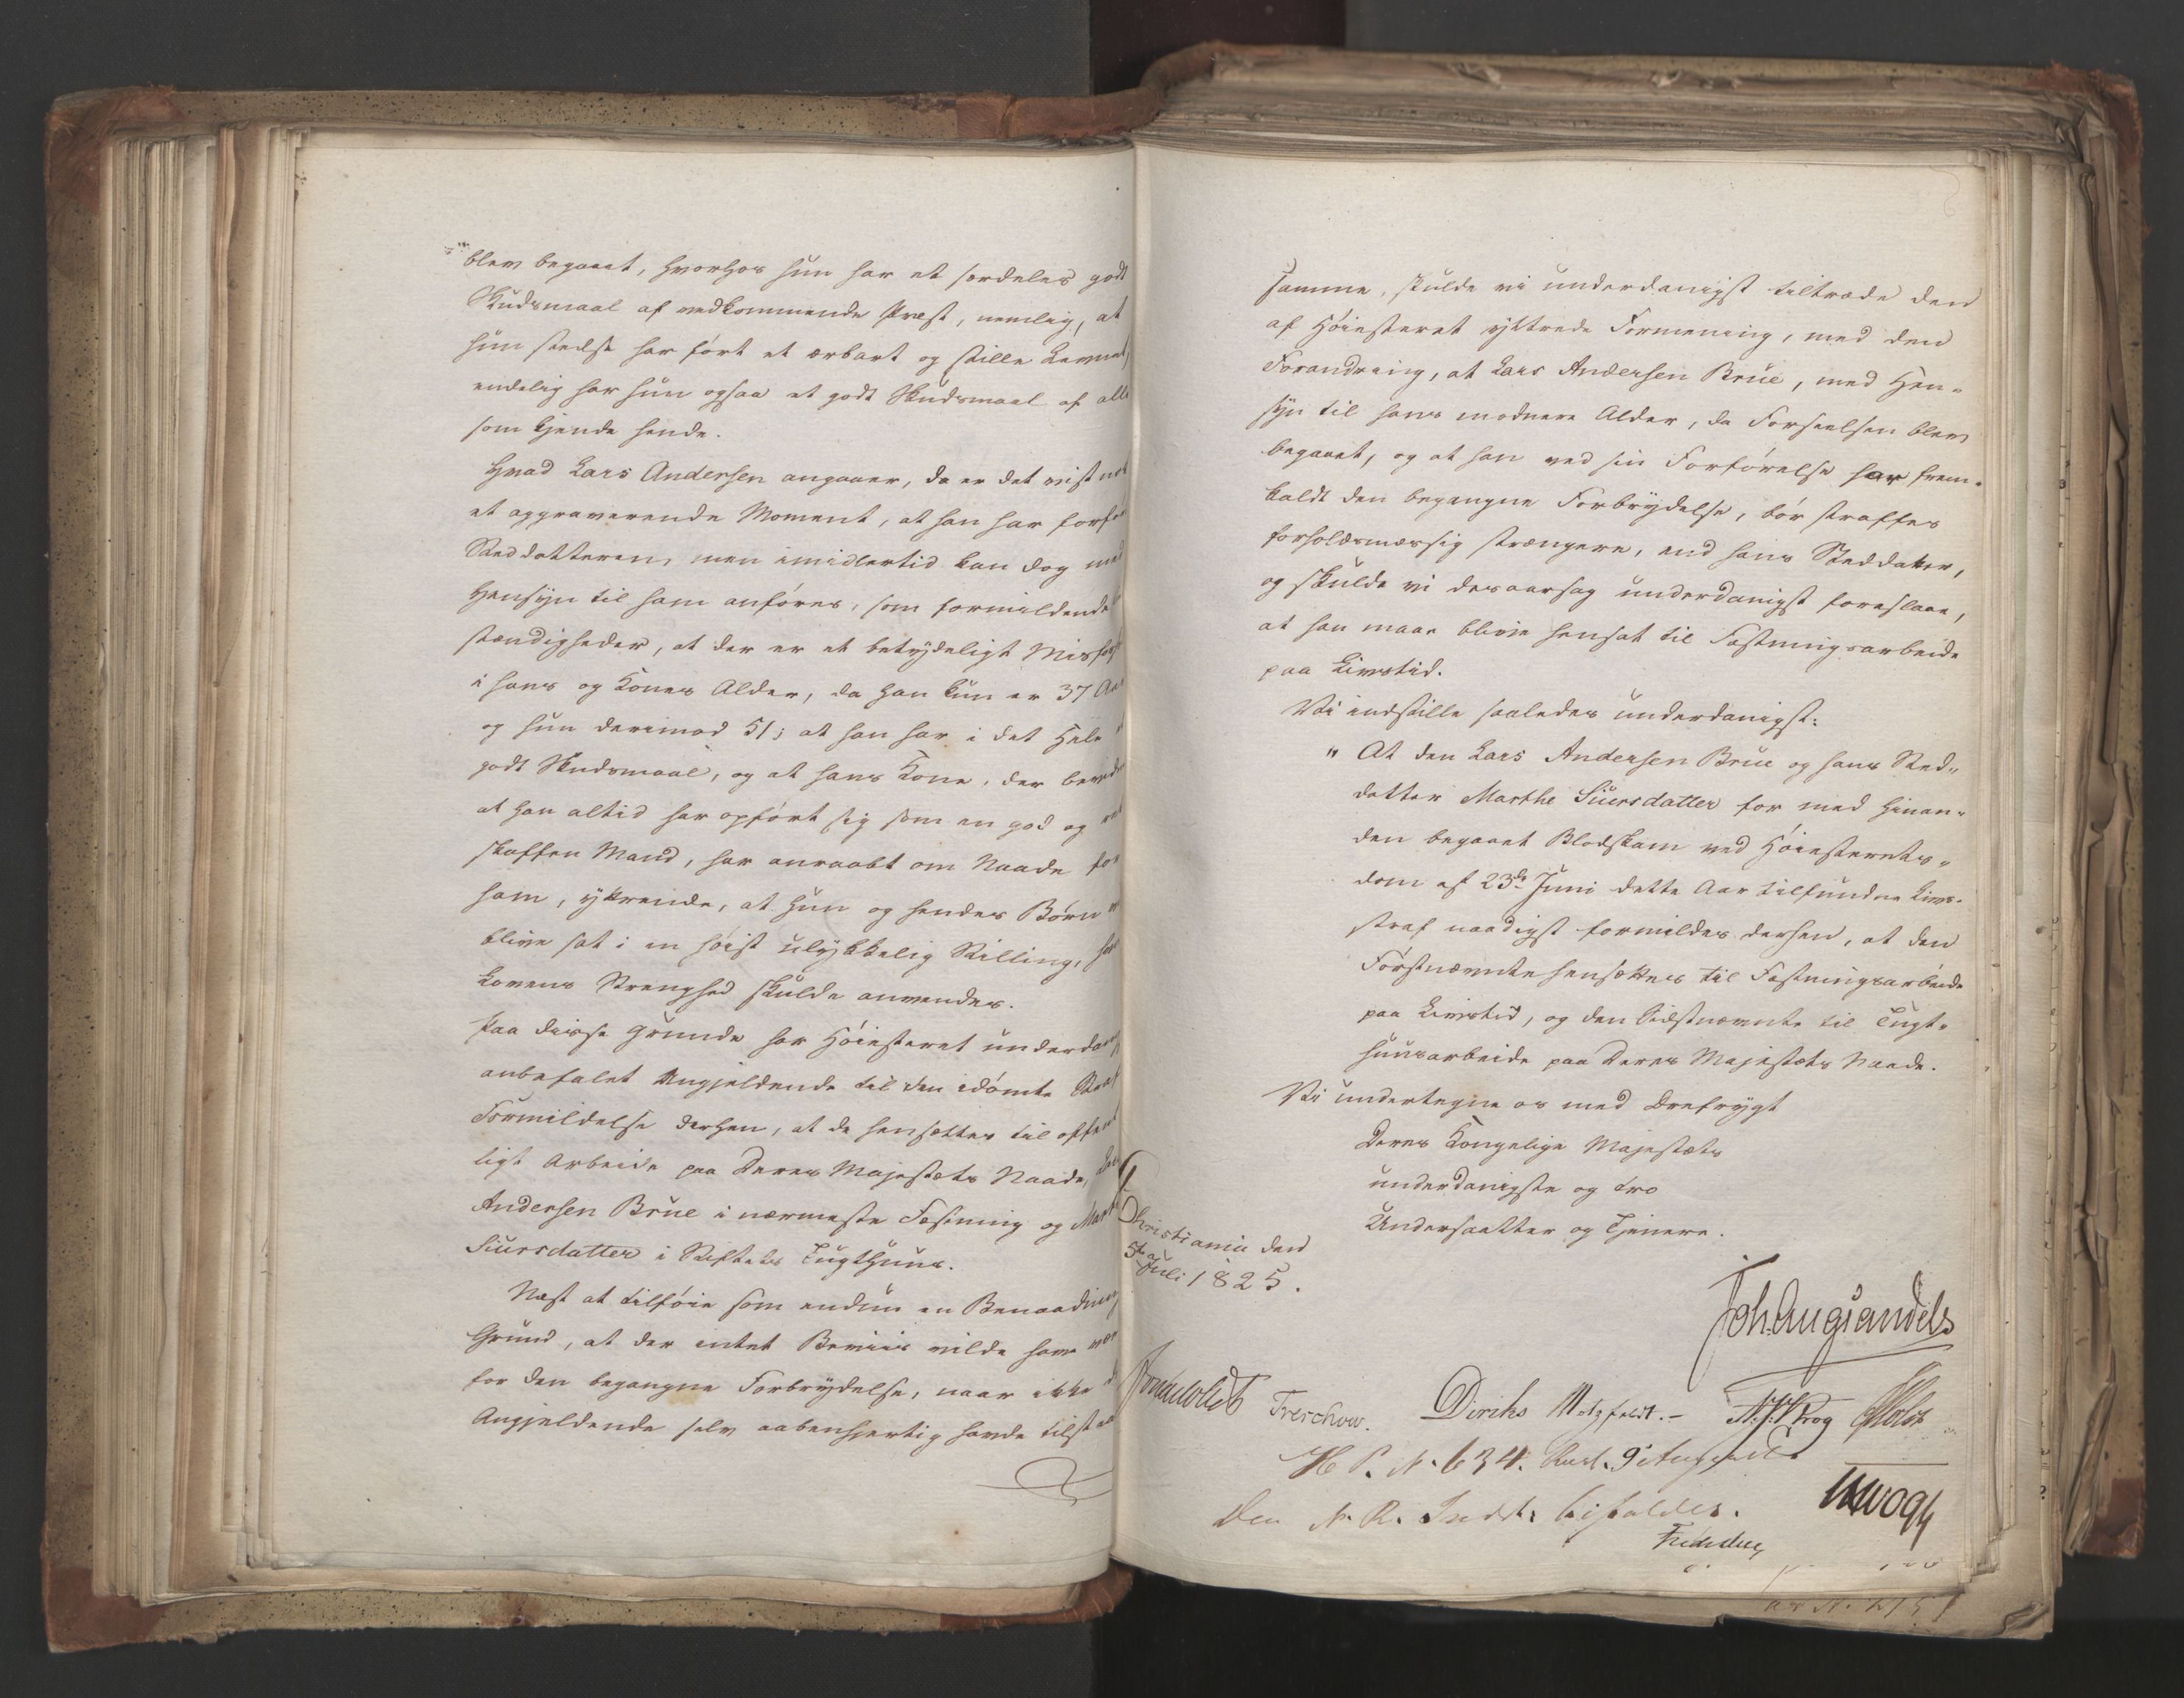 blev begaaet, hvorhos hun har et særdeles godt
Skudsmaal af vedkommende Præst, nemlig, at
hun stedse har ført et ærbart og stille Levnet,
endelig har hun ogsaa et godt Skudsmaal af alle
som kjende hende.
Hvad Lars Andersen angaaer, da er det vist nok
et aggraverende Moment, at han har forført
Steddatteren, men imidlertid kan dog med
Hensyn til ham anføres, som formildende
stændigheder, at der er et betydeligt Misforh
i hans og Kones Alder, da han kun er 37 Aar
og hun derimod 51; at han har i det Hele
godt Skudsmaal, og at hans Kone, der bevidner
at han altid har opført sig som en god og ret
skaffen Mand, har anraabt om Naade for
ham, yttrende, at hun og hendes Børn
blive sat i en høist ulykkelig Stilling,
Lovens Strenghed skulde anvendes.
Paa disse Grunde har Høiesteret underdanigst
anbefalet Angjeldende til den idømte Straf
Formildelse derhen, at de hensættes til offent
ligt Arbeide paa Deres Majestæts Naade, Lars
Andersen Brue i nærmeste Fæstning og Marthe
Siursdatter i Stiftets Tugthuus.
Næst at tilføie som endnu en Benaadnings
Grund, at der intet Beviis vilde have været
for den begangne Forbrydelse, naar ikke
Angjeldende selv aabenhjertig havde tilstaaet
samme, skulde vi underdanigst tiltræde den
af Høiesteret yttrede Formening, med den
Forandring, at Lars Andersen Brue, med Hen-
syn til hans modnere Alder, da Forseelsen blev
begaaet, og at han ved sin Forførelse har frem-
kaldt den begangne Forbrydelse, bør straffes
forholdsmæssig strængere, end hans Steddatter,
og skulde vi desaarsag underdanigst foreslaae,
at han maae blive hensat til Fæstningsarbeide
paa Livstid.
Vi indstille saaledes underdanigst:
" At den Lars Andersen Brue og hans Sted-
datter Marthe Siursdatter for med hinan-
den begaaet Blodskam ved Høiesterets-
dom af 23de Juni dette Aar tilfundne Livs-
straf naadigst formildes derhen, at den
Førstnævnte hensættes til Fæstningsarbeide
paa Livstid, og den Sidstnævnte til Tugt-
huusarbeide paa Deres Majestæts Naade.
Vi undertegne os med Ærefrygt
Deres Kongelige Majestæts
underdanigste og tro
Undersaatter og Tjenere.
Christiania den
5te Juli 1825.
Joh. Aug Sandels
Treschow. Diriks Motzfeldt.- Krog Holst
N. 634. 9 August
Den N. R. Indst. bifaldes.
Vogt